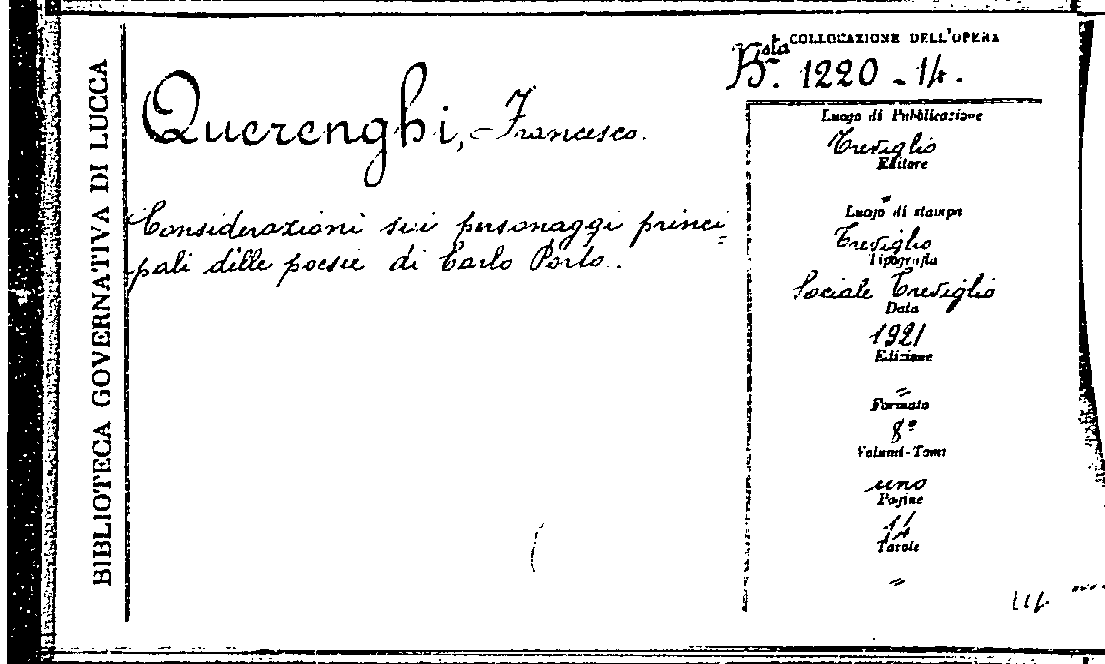 BIBLIOTECA GOVERNATIVA DI LUCCA
Querenghi, - Francesco.
Considerazioni sui personaggi princi=
pali delle poesie di Carlo Porto.
COLLOCAZIONE DELL'OPERA
Bsta. 1220 - 14.
Luogo di Pubblicazione
Treviglio
Editore
"
Luogo di stampa
Treviglio
Tipografia
Sociale Treviglio
Data
1921
Edizione
"
Formato
8º
Volumi-Tomi
uno
Pagine
14
Tavole
"